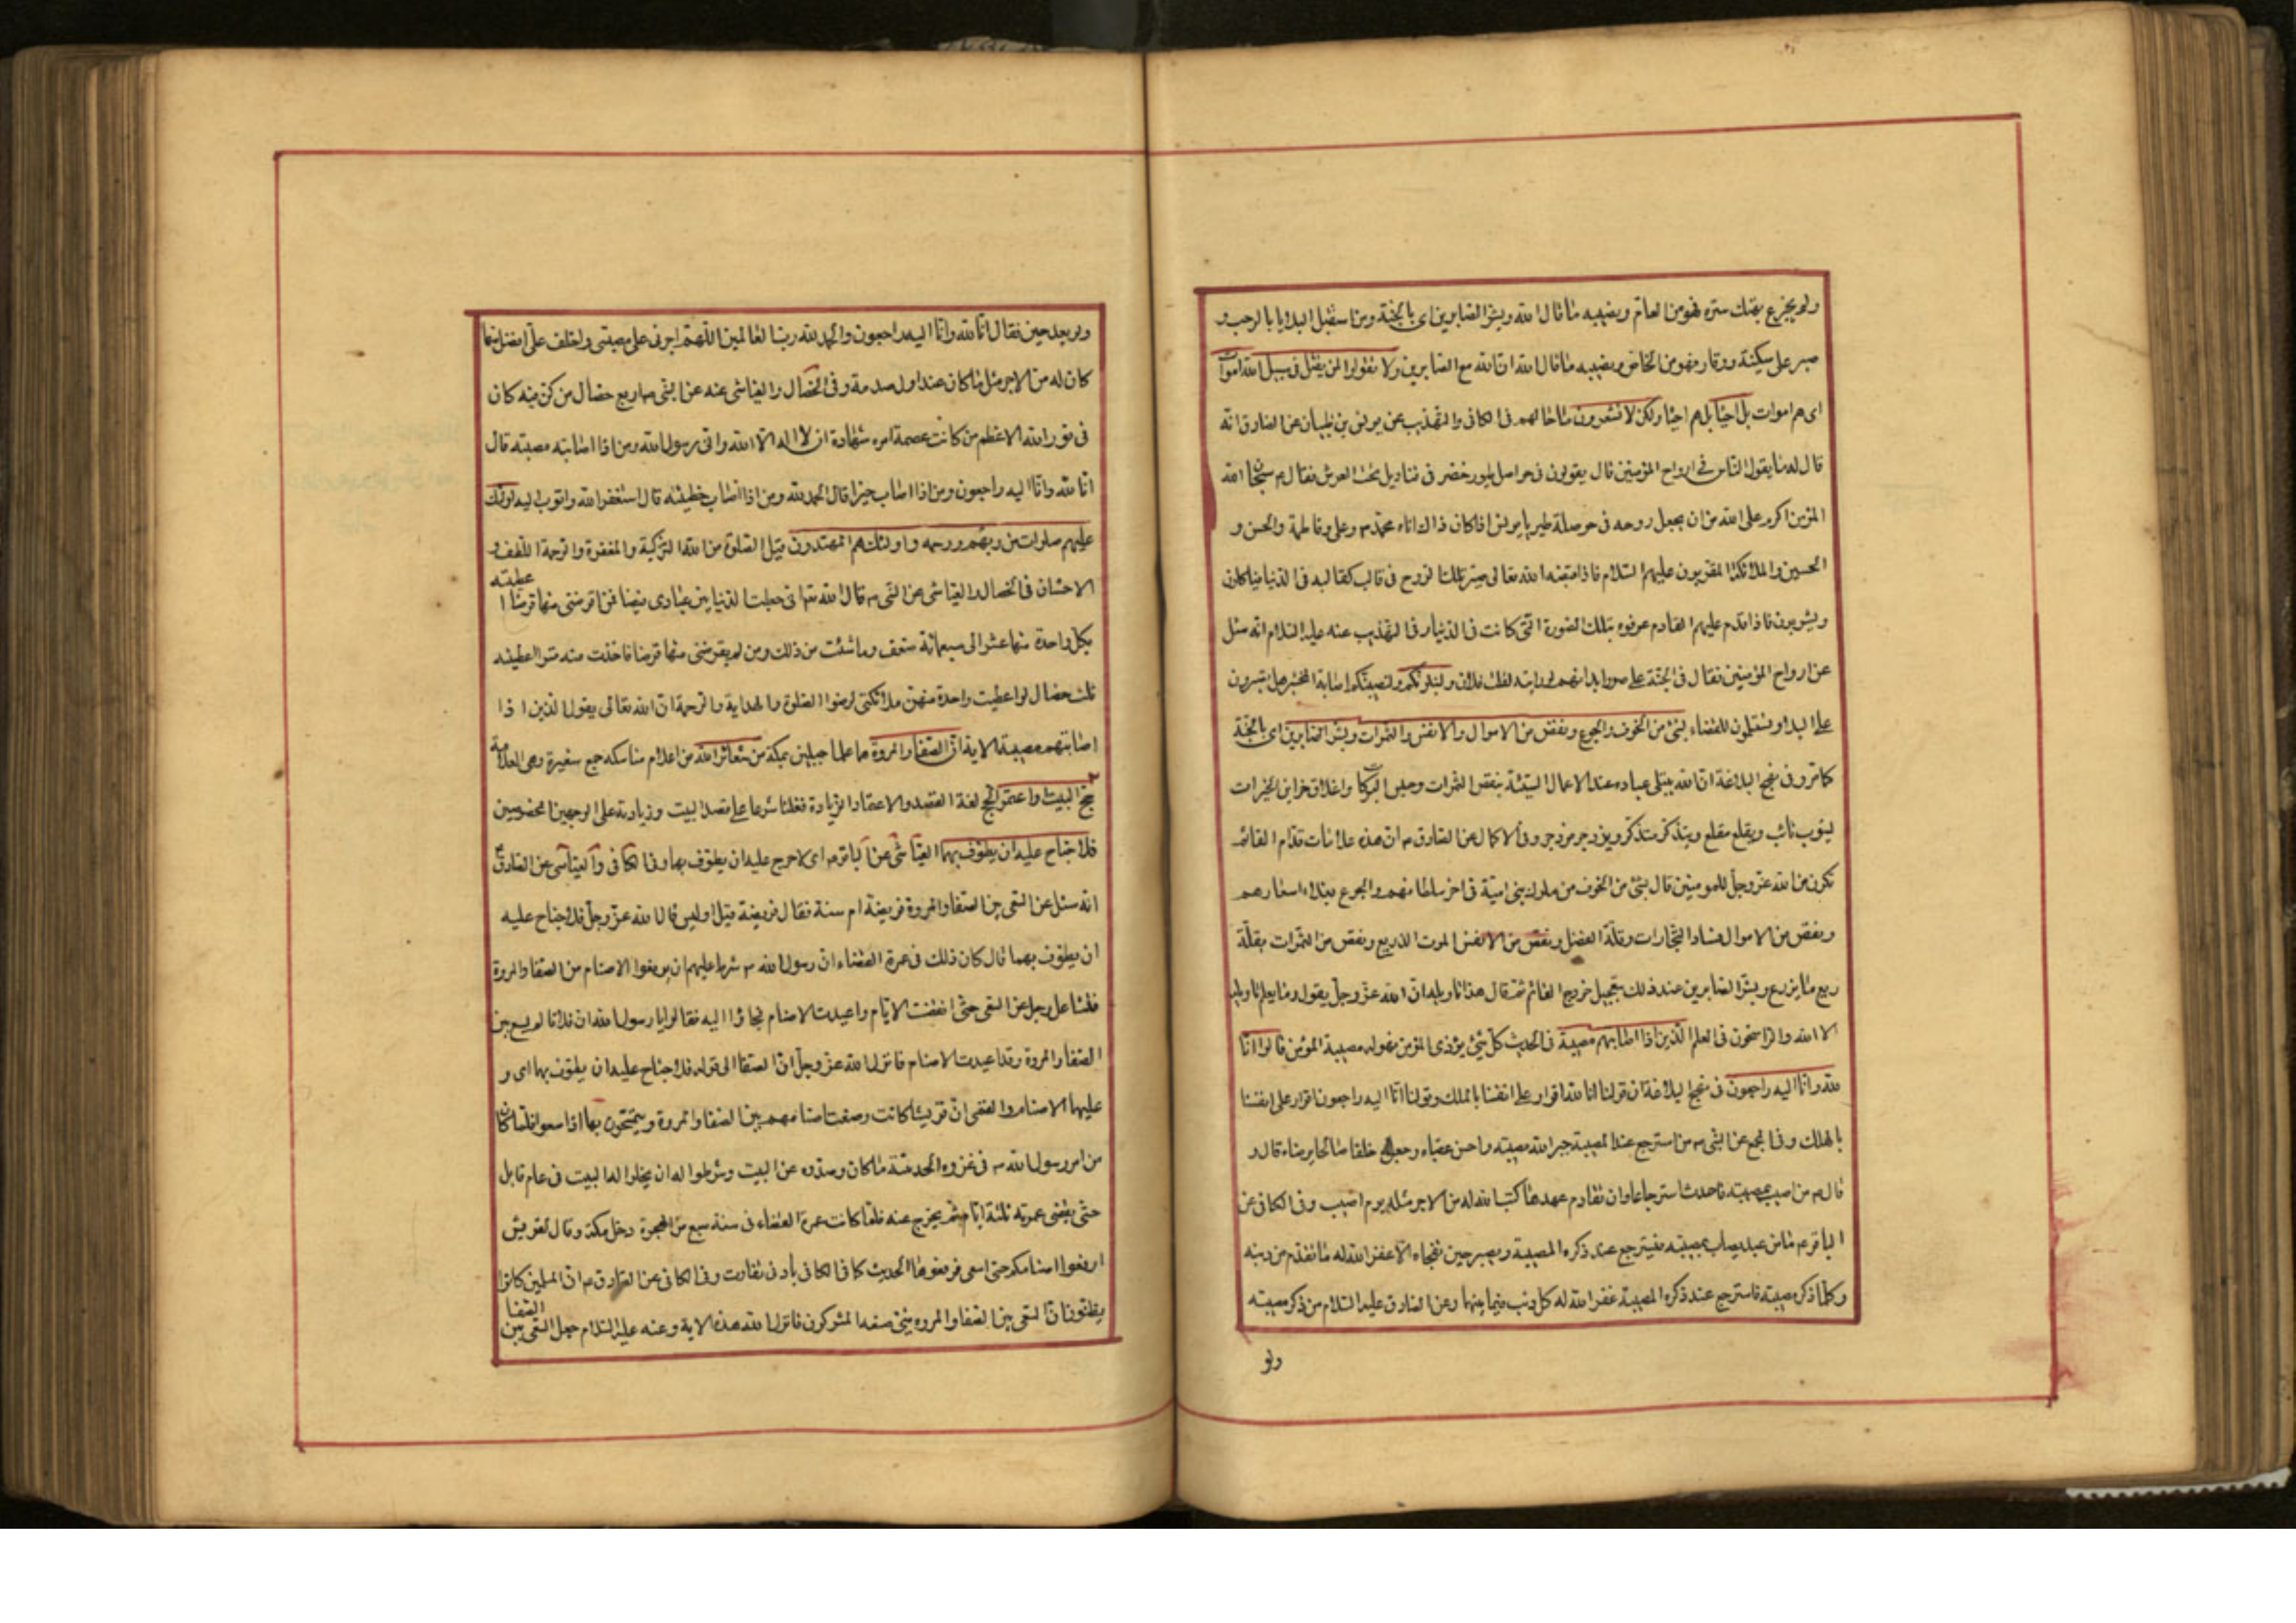 ولم يجزع بهتك ستره فهو من العام ونصيبه ما قال الله وبشر الصابرين اى بالجنة ومن استقبل البلايا بالرحب و
صبر على سكينة ووقار فهو من الخاص ونصيبه ما قال الله ان الله مع الصابرين ولا تقولوا لمن يقتل فى سبيل الله اموات
اى هم اموات بل احياء بل هم احياء ولكن لا تشعرون ما حالهم فى الكافى والتهذيب عن يونس بن ظبيان عن الصادق انه
قال له ما يقول الناس فى ارواح المؤمنين قال يقولون فى حواصل طيور خضر فى قناديل تحت العرش فقال ع سبحان الله
المؤمن اكرم على الله من ان يجعل روحه فى حوصلة طير يا يونس اذا كان ذلك اتاه محمد ص وعلى وفاطمة والحسن و
الحسين والملائكة المقربون عليهم السلام فاذا قبضه الله تعالى صير تلك الروح فى قالب كقالبه فى الدنيا فياكلون
ويشربون فاذا قدم عليهم القادم عرفوه بتلك الصورة التى كانت فى الدنيا وفى التهذيب عنه عليه السلام انه سئل
عن ارواح المؤمنين فقال فى الجنة على صور ابدانهم لو رايته لقلت فلان ولنبلونكم ولنصيبنكم اصابة المختبر هل تصبرون
على البلاء وتستسلمون للقضاء بشئ من الخوف والجوع ونقص من الاموال والانفس والثمرات وبشر الصابرين اى بالجنة
كما مر وفى نهج البلاغة ان الله يبتلى عباده عند الاعمال السيئة بنقص الثمرات وحبس البركات واغلاق خزاين الخيرات
ليتوب تائب ويقلع مقلع ويتذكر متذكر ويزدجر مزدجر وفى الاكمال عن الصادق ع ان هذه علامات قدام القائم
تكون من الله عز وجل للمومنين قال بشئ من الخوف من ملوك بنى امية فى اخر سلطانهم والجوع بغلاء اسعارهم
ونقص من الاموال فساد التجارات وقلة الفضل ونقص من الانفس الموت الذريع ونقص من الثمرات بقلة
ريع ما يزرع وبشر الصابرين عند ذلك بتعجيل خروج القائم ثم قال هذا تاويله ان الله عز وجل يقول وما يعلم تاويله
الا الله والراسخون فى العلم الذين اذا اصابتهم مصيبة فى الحديث كل شئ يؤذى المؤمن فهو له مصيبة المؤمن قالوا انا
لله وانا اليه راجعون فى نهج البلاغة ان قولنا انا لله اقرار على انفسنا بالملك وقولنا انا اليه راجعون اقرار على انفسنا
بالهلك وفى المجمع عن النبى ص من استرجع عند المصيبة جبر الله مصيبته واحسن عقباه وجعل له خلفا صالحا يرضاه قال و
قال ع من اصيب بمصيبة فاحدث استرجاعا وان تقادم عهدها كتب الله له من الاجر مثله يوم اصيب وفى الكافى عن
الباقر ع ما من عبد يصاب بمصيبته فيسترجع عند ذكره المصيبة ويصبر حين تفجاه الا غفر الله له ما تقدم من ذنبه
وكلما ذكر مصيبة فاسترجع عند ذكره المصيبة غفر الله له كل ذنب فيما بينهما وعن الصادق عليه السلام من ذكر مصيبته
ولو
ولو بعد حين فقال انا لله وانا اليه راجعون والحمد لله رب العالمين اللهم اجرنى على مصيبتى واخلف على افضل منها
كان له من الاجر مثل ما كان عند اول صدمة وفى الخصال والعياشى عنه عن النبى ص اربع خصال من كن فيه كان
فى نور الله الاعظم من كانت عصمة امره شهادة ان لا اله الا الله وانى رسول الله ومن اذا اصابته مصيبة قال
انا لله وانا اليه راجعون ومن اذا اصاب خيرا قال الحمد لله ومن اذا اصاب خطيئة قال استغفر الله واتوب اليه اولئك
عليهم صلوات من ربهم ورحمه واولئك هم المهتدون قيل الصلوة من الله التزكية والمغفرة والرحمة اللطف و
الاحسان فى الخصال والعياشى عن النبى ص قال الله تعالى انى جعلت الدنيا بين عبادى فيضا فمن اقرضنى منها قرضا اعطيته
بكل واحدة منها عشرا الى سبعمائة ضعف وما شئت من ذلك ومن لم يقرضنى منها قرضا فاخذت منه قسرا اعطيته
ثلث خصال لو اعطيت واحدة منهن ملائكتى لرضوا الصلوة والهداية والرحمة ان الله تعالى يقول الذين اذا
اصابتهم مصيبة الاية ان الصفا والمروة هما علما جبلين بمكة من شعائر الله من اعلام مناسكه جمع شعيرة وهى العلامة
فمن حج البيت او اعتمر الحج لغة القصد والاعتمار الزيارة فغلبا شرعا على قصد البيت وزيارته على الوجهين المخصوصين
فلا جناح عليه ان يطوف بهما العياشى عن الباقر ع اى لا حرج عليه ان يطوف بهما وفى الكافى والعياشى عن الصادق ع
انه سئل عن السعى بين الصفا والمروة فريضة ام سنة فقال فريضة قيل اوليس قال الله عز وجل فلا جناح عليه
ان يطوف بهما قال كان ذلك فى عمرة القضاء ان رسول الله ص شرط عليهم ان يرفعوا الاصنام من الصفا والمروة
فتشاغل رجل عن السعى حتى انقضت الايام واعيدت الاصنام فجاؤا اليه فقالوا يا رسول الله ان فلانا لم يسع بين
الصفا والمروة وقد اعيدت الاصنام فانزل الله عز وجل ان الصفا الى قوله فلا جناح عليه ان يطوف بهما اى و
عليهما الاصنام والقمى ان قريشا كانت وضعت اصنامهم بين الصفا والمروة ويتمسحون بها اذا سعوا فلما كان
من امر رسول الله ص فى غزوة الحديبية ما كان وصدوه عن البيت وشرطوا له ان يخلوا له البيت فى عام قابل
حتى يقضى عمرته ثلثة ايام ثم يخرج عنه فلما كانت عمرة القضاء فى سنة سبع من الهجرة دخل مكة وقال لقريش
ارفعوا اصنامكم حتى اسعى فرفعوها الحديث كما فى الكافى بادنى تفاوت وفى الكافى عن الصادق ع ان المسلمين كانوا
يظنون ان السعى بين الصفا والمروه شئ صنعه المشركون فانزل الله هذه الاية وعنه عليه السلام جعل السعى بين الصفا